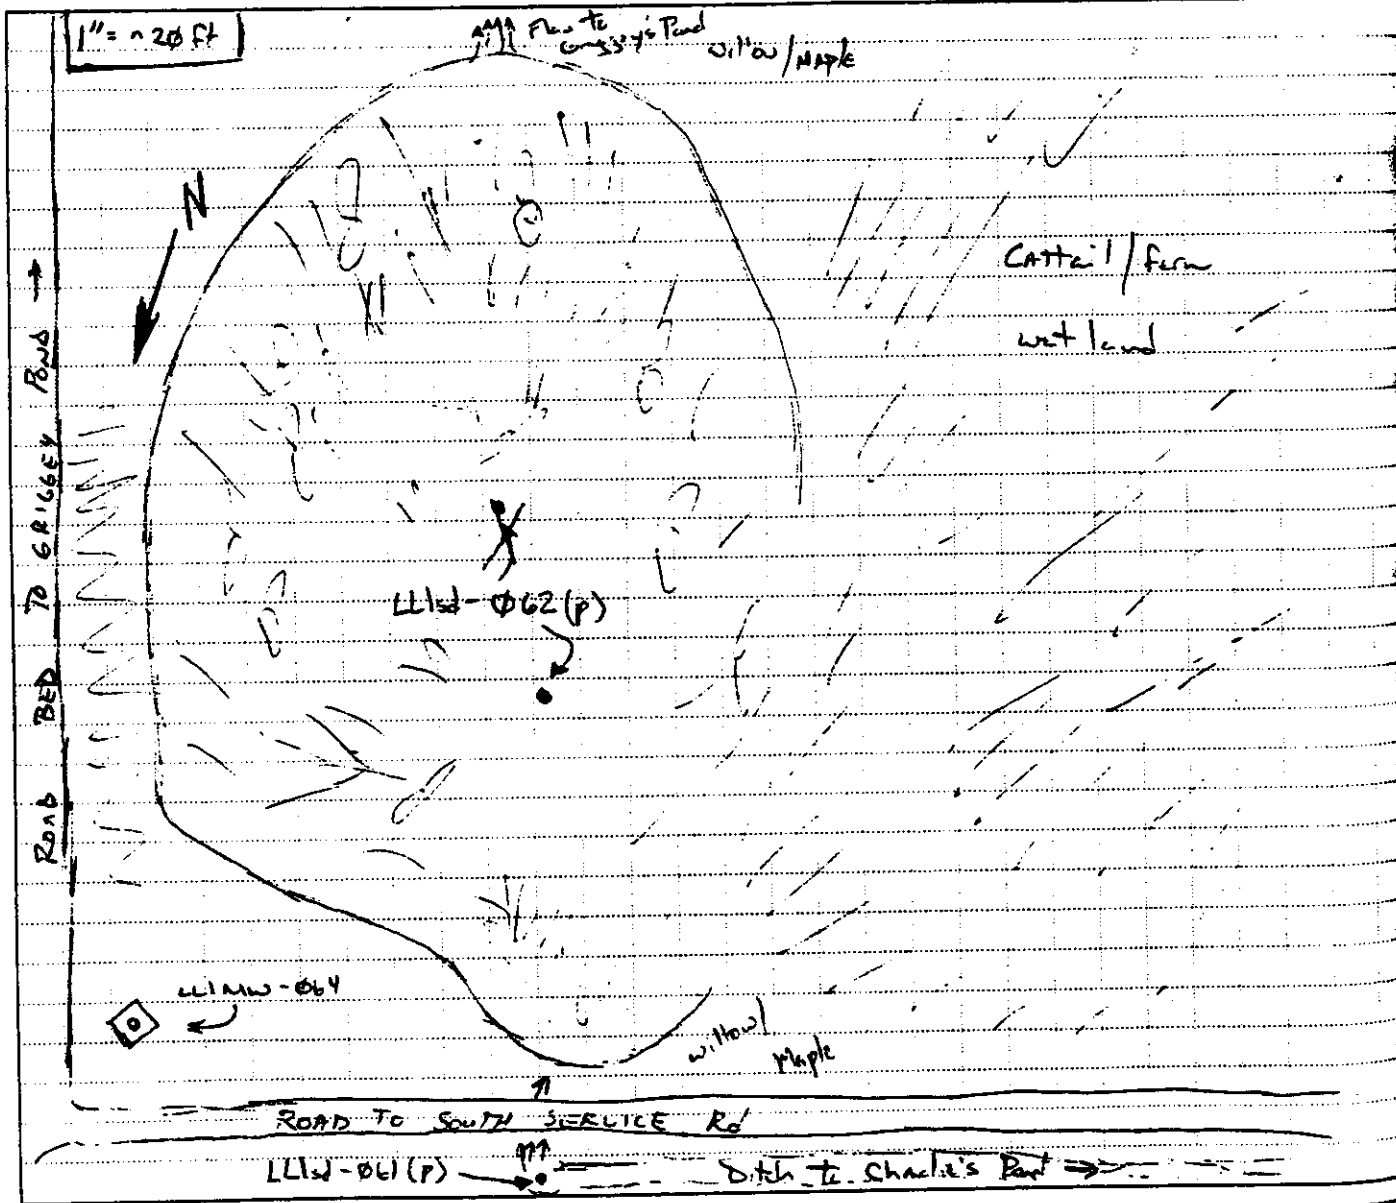 1" = ~20 ft
Flow to
Griggy's Pond
Willow/MAPLE
N
CATTail/fern
wetland
ROAD BED TO GRIGGEY POND →
LL1sd-Ø62(p)
LL1MW-Ø64
willow/
Maple
ROAD TO SOUTH SERVICE Rd
LL1sd-Ø61(p)
Ditch to Charlie's Pond